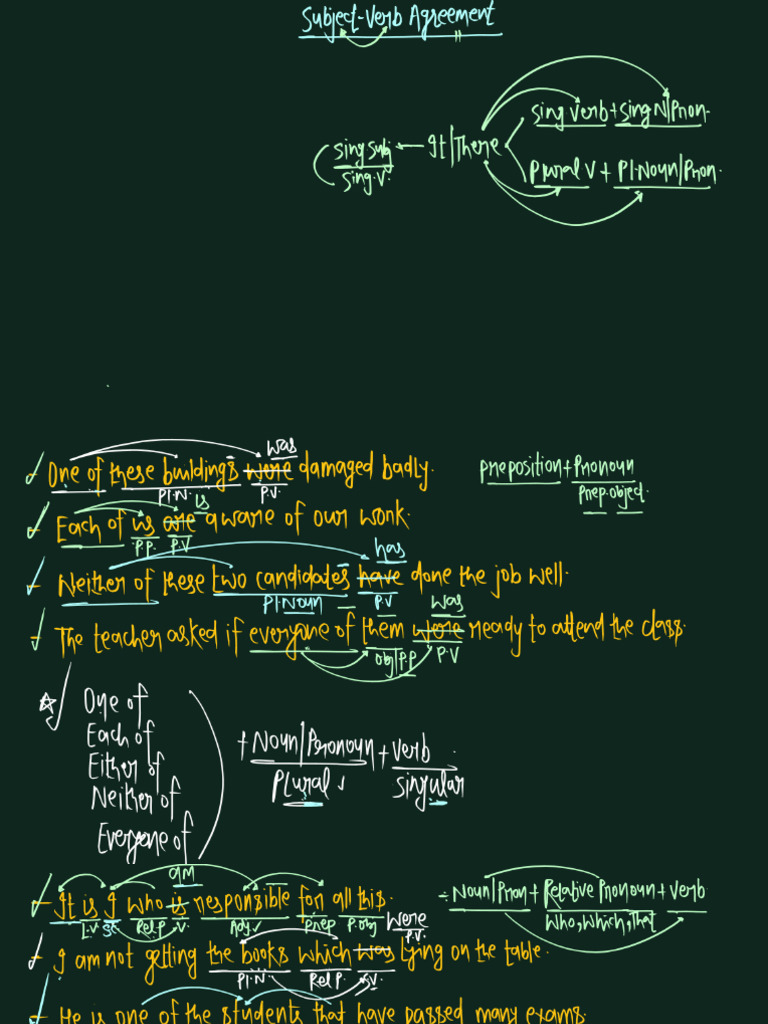 Subject-Verb Agreement
sing verb + sing N/Pron.
sing subj ← It/There
sing.V.
Plural V + Pl.Noun/Pron.
was
One of these buildings were damaged badly.
Pl.N. P.V.
preposition + Pronoun
Prep.object.
is
Each of us are aware of our work.
P.P. P.V
has
Neither of these two candidates have done the job well.
Pl.Noun P.V
was
The teacher asked if everyone of them were ready to attend the class.
obj/P.P P.V
One of
Each of
Either of
Neither of
Everyone of
+ Noun/Pronoun + verb
Plural singular
am
It is I who is responsible for all this.
I.V SC Rel.P V. Adj. Prep P.obj
÷ Noun/Pron + Relative Pronoun + verb
Who, which, That
were
P.V.
I am not getting the books which was lying on the table.
Pl.N. Rel P. S.V.
He is one of the students that have passed many exams.